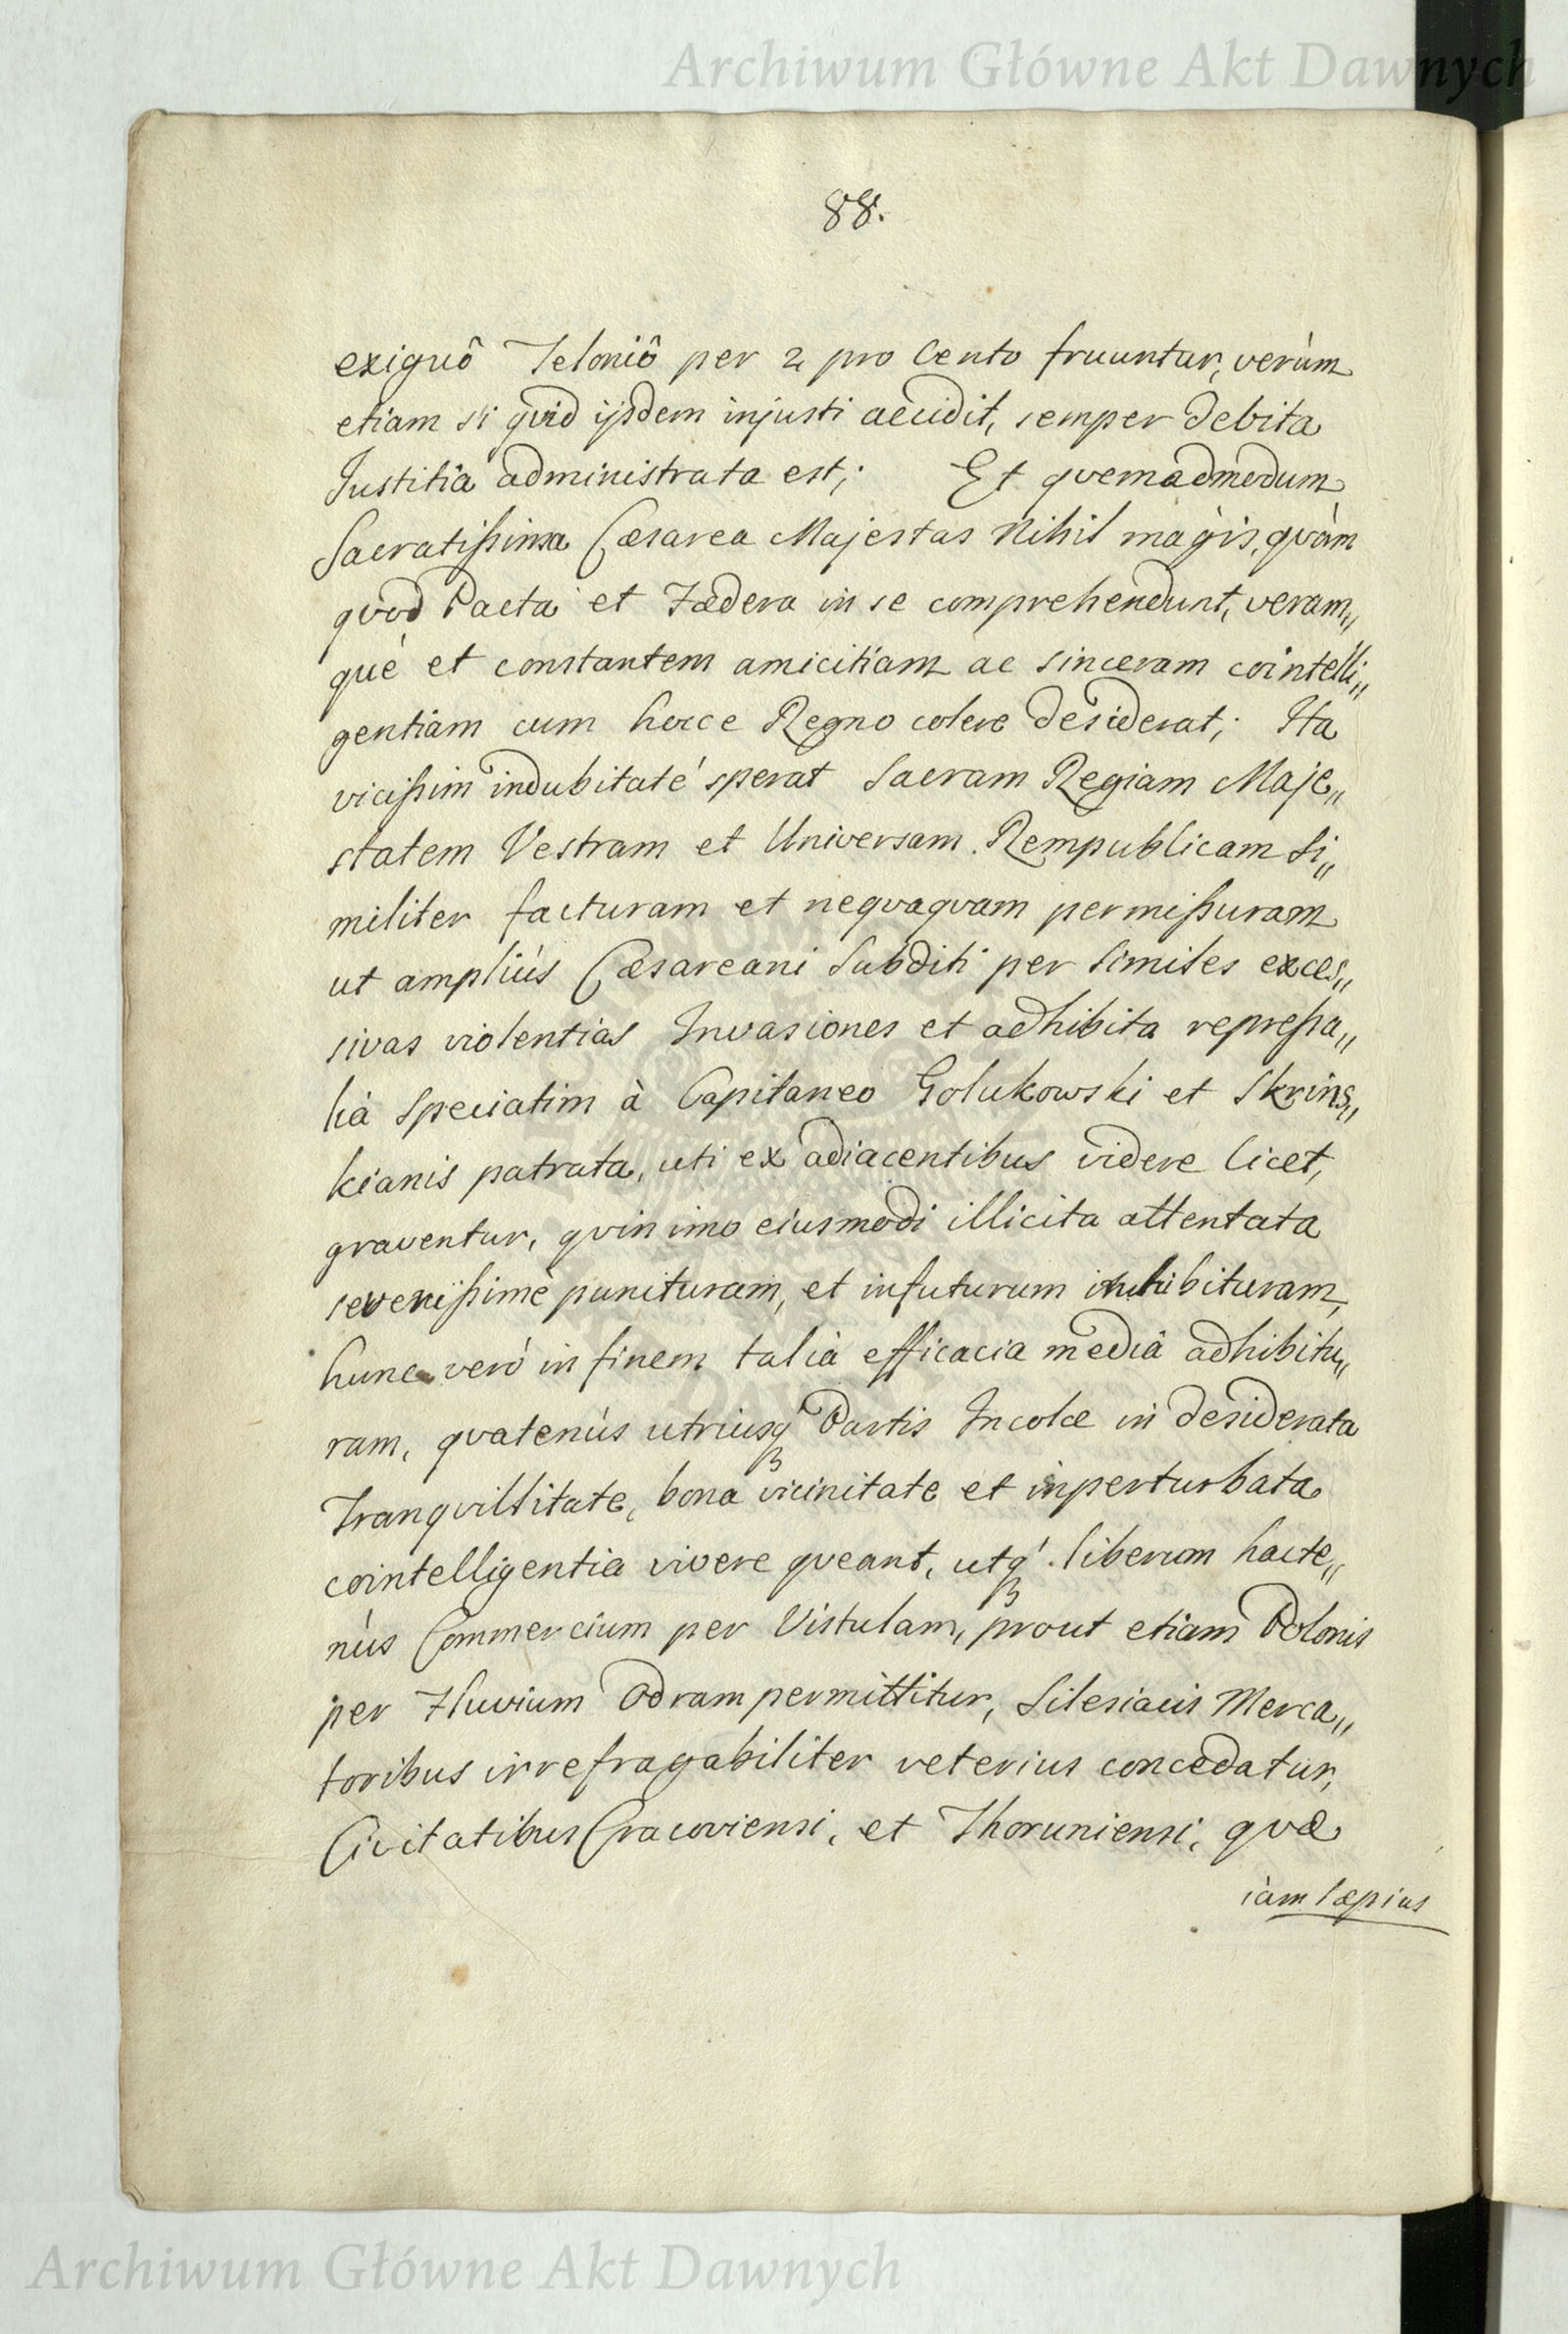 Archiwum Główne Akt Dawnych
88.
exiguô Teloniô per 2 pro Cento fruuntur, verùm
etiam si qvid ijsdem injusti accidit, semper debita
Justitia administrata est; Et qvemadmodum
Sacratißima Cæsarea Majestas Nihil magis, qvàm
qvod Pacta et Fædera in se comprehendunt, veram„
què et constantem amicitiam ac sinceram cointelli„
gentiam cum hocce Regno colere desiderat; Ita
vicißim indubitaté sperat Sacram Regiam Maje„
statem Vestram et Universam Rempublicam Si„
militer facturam et neqvaqvam permißuram
ut ampliùs Cæsareani Subditi per Similes exces„
sivas violentias Invasiones et adhibita repreßa„
lia Speciatim à Capitaneo Golukowski et Skrins„
kianis patrata, uti ex adiacentibus videre licet,
graventur, qvin imo eiusmodi illicita attentata
severißimè punituram, et infuturum inhibituram,
hunc verò in finem talia efficacia media adhibitu„
ram, qvatenùs utriusq Partis Incolæ in desiderata
Tranqvillitate, bona vicinitate et inperturbata
cointelligentia vivere qveant, utq liberum hacte„
nùs Commercium per Vistulam, prout etiam Polonis
per Fluvium Odram permittitur, Silesiacis Merca„
toribus irrefragabiliter veterius concedatur,
Civitatibus Cracoviensi, et Thoruniensi, qvæ
iàm Sæpius
Archiwum Główne Akt Dawnych